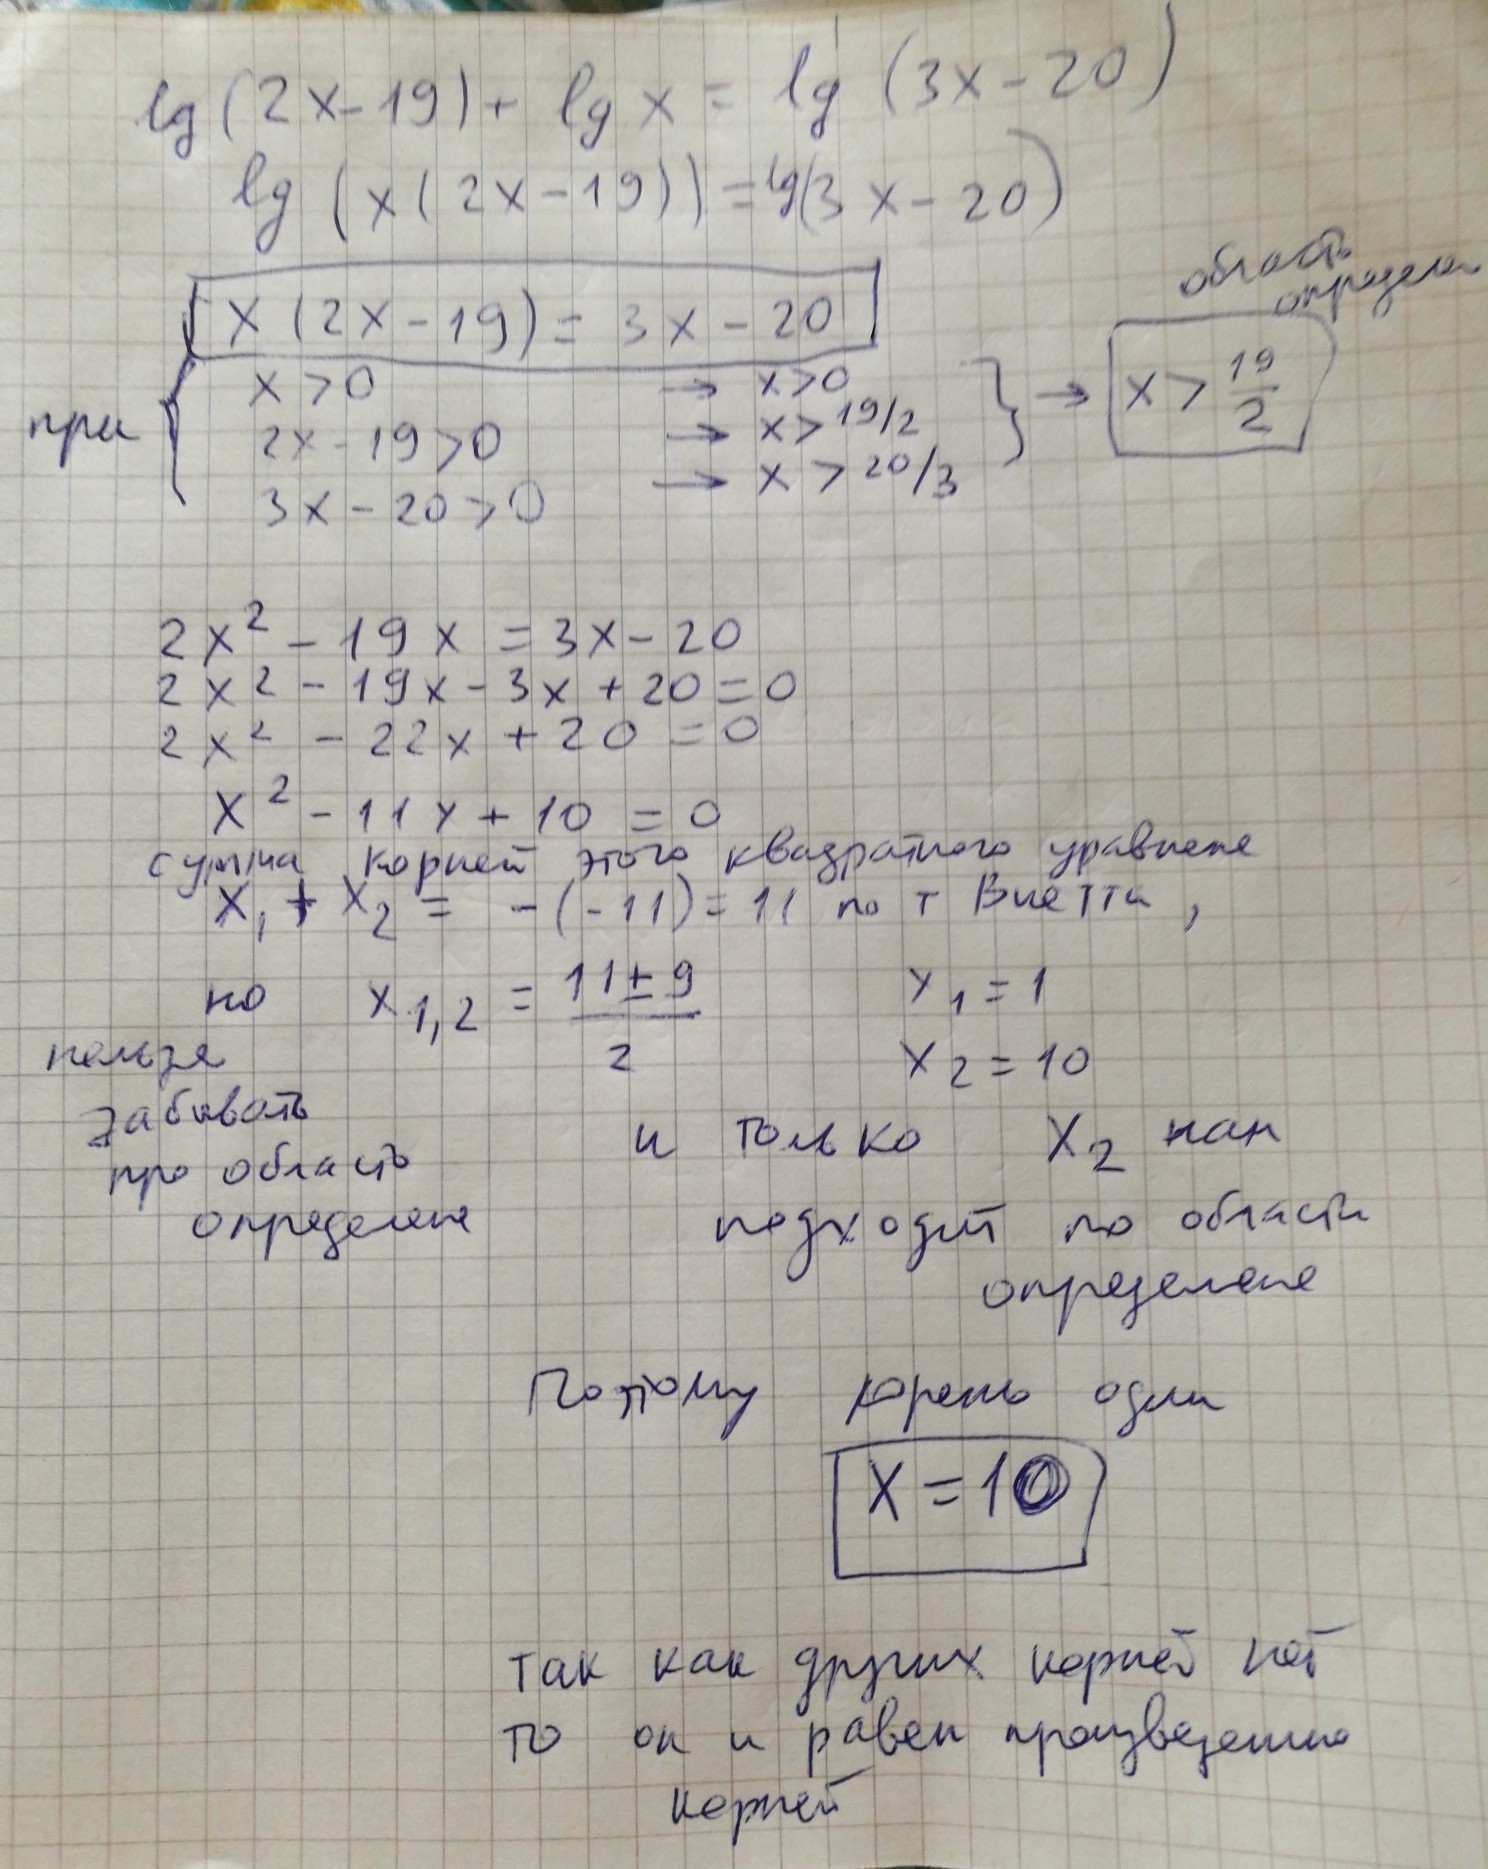 lg(2x-19)+ lg x = lg (3x-20)
lg (x(2x-19))=lg(3x-20)
область
определен
x(2x-19)=3x-20
при
x>0 → x>0
2x-19>0 → x>19/2
3x-20>0 → x>20/3
→ x>19/2
2x² - 19x = 3x-20
2x² - 19x - 3x + 20 = 0
2x² - 22x + 20 = 0
x² - 11x + 10 = 0
сумма корней этого квадратного уравнене
x₁ + x₂ = -(-11) = 11 по т Виетта,
но x₁,₂ = (11±9)/2 x₁ = 1
x₂ = 10
нельзя
забывать
про область
определене
и только x₂ нам
подходит по области
определене
Поэтому корень один
x=10
так как других корней нет
то он и равен произведению
корней